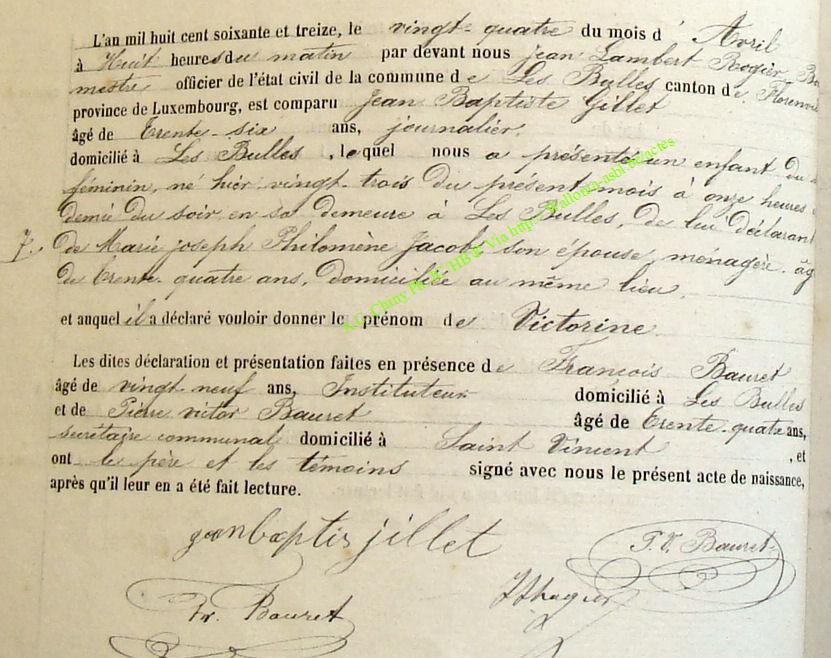 L'an mil huit cent soixante et treize, le vingt-quatre du mois d' Avril
à Huit heures du matin par devant nous Jean Lambert Rogier, Bo
mestre officier de l'état civil de la commune de Les Bulles canton de Florenvi
province de Luxembourg, est comparu Jean Baptiste Gillet
âgé de Trente-six ans, journalier,
domicilié à Les Bulles, lequel nous a présenté un enfant du
féminin, né hier vingt-trois du présent mois à onze heures
demie du soir en sa demeure à Les Bulles, de lui déclarant
7. de Marie joseph Philomène Jacob, son épouse, ménagère, âg
de trente-quatre ans, domiciliée au même lieu,
et auquel il a déclaré vouloir donner le prénom de Victorine
Les dites déclaration et présentation faites en présence de François Bauret
âgé de vingt-neuf ans, Instituteur domicilié à Les Bulles
et de Pierre victor Bauret âgé de trente-quatre ans,
secrétaire communal domicilié à Saint Vincent, et
ont le père et les témoins signé avec nous le présent acte de naissance,
après qu'il leur en a été fait lecture.
jeanbaptis jillet
P. V. Bauret
Fr. Bauret